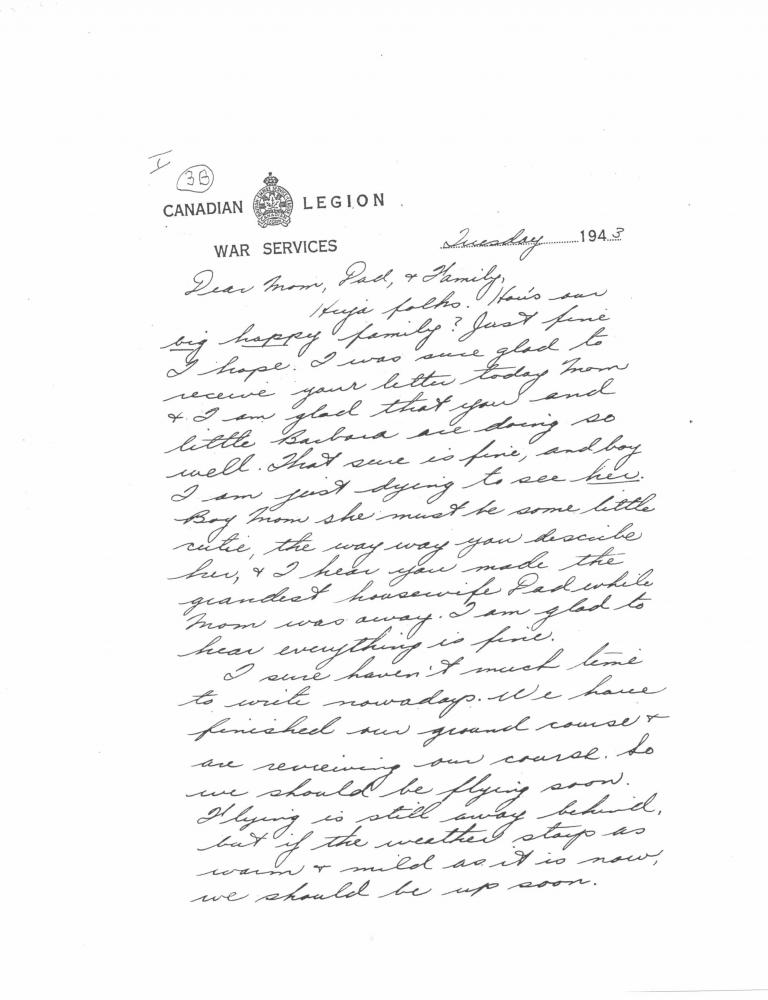 I
3B
CANADIAN LEGION
WAR SERVICES
Tuesday 1943
Dear Mom, Dad, & Family,
Hiya folks. How's our
big happy family? Just fine
I hope. I was sure glad to
receive your letter today Mom
& I am glad that you and
little Barbara are doing so
well. That sure is fine, and boy
I am just dying to see her.
Boy Mom she must be some little
cutie, the way way you describe
her, & I hear you made the
grandest housewife Dad while
Mom was away. I am glad to
hear everything is fine.
I sure haven't much time
to write nowadays. We have
finished our ground course &
are reveiwing our course. So
we should be flying soon.
Flying is still away behind,
but if the weather stays as
warm & mild as it is now,
we should be up soon.